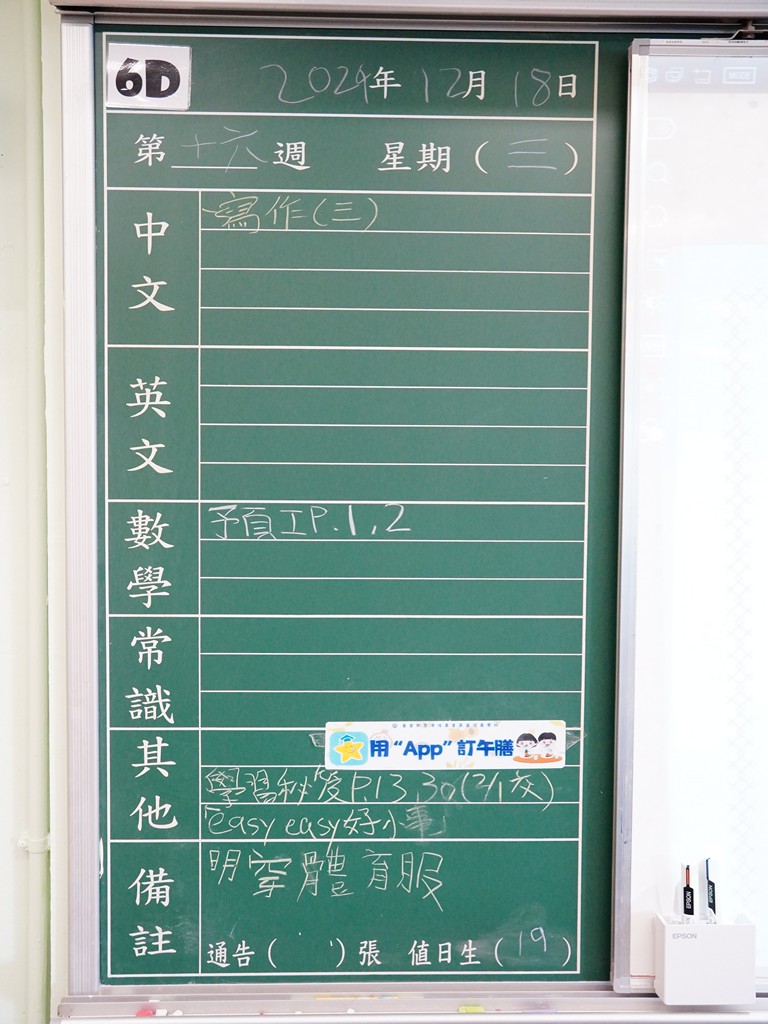 6D
2024年 12月 18日
第 十六 週 星期 (三)
中文 寫作(三)
英文
數學 預工P.1,2
常識
用 “App” 訂午膳
其他 學習秘笈P.13,30(2/1交)
easy easy好小事
備註 明穿體育服
通告 ( ) 張 值日生 (19)
MODE
EPSON
EPSON
EPSON